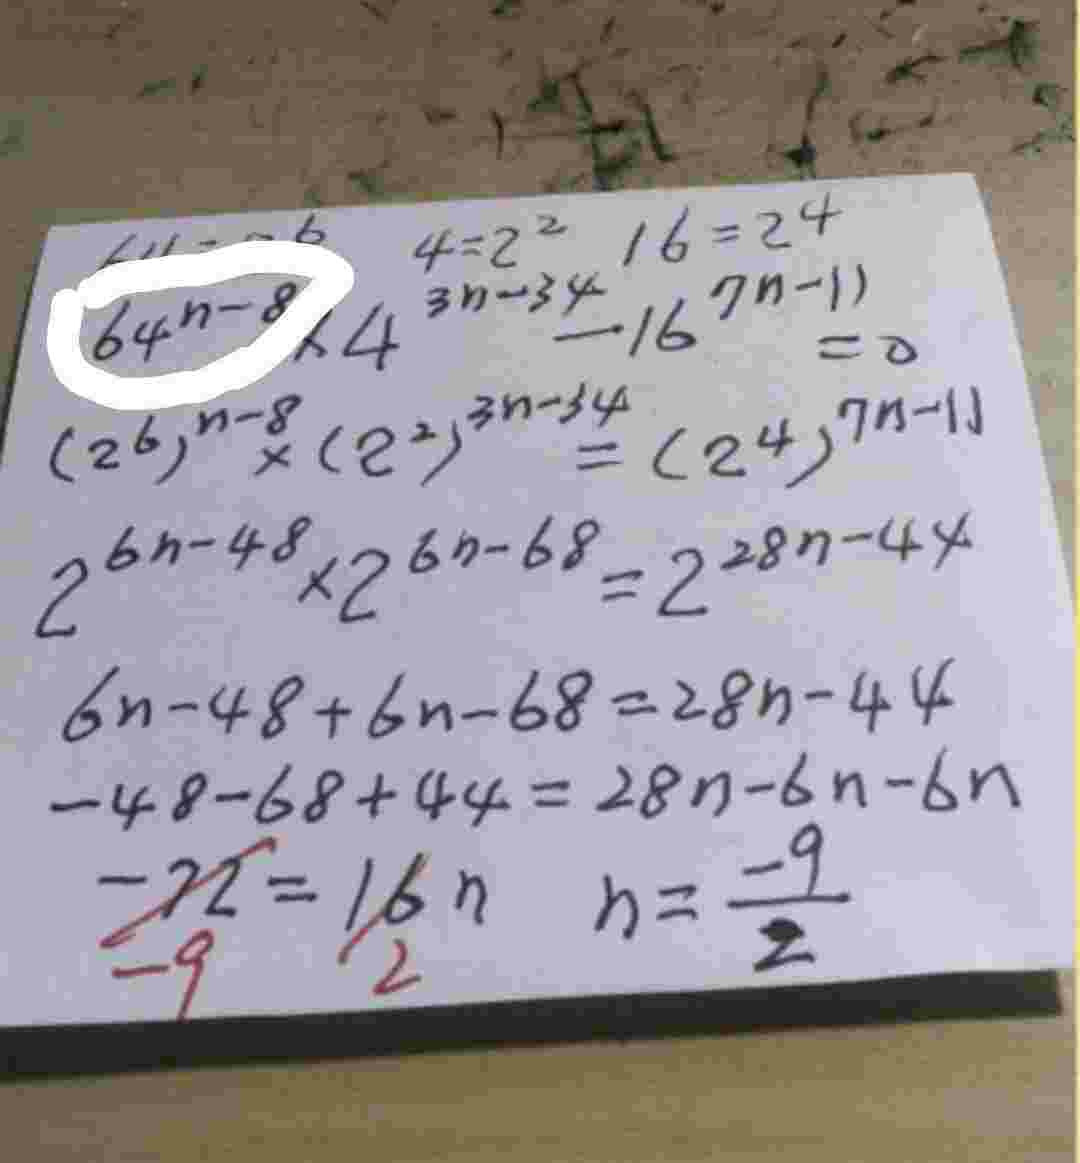 4=2² 16=2⁴
64ⁿ⁻⁸×4³ⁿ⁻³⁴-16⁷ⁿ⁻¹¹=0
(2⁶)ⁿ⁻⁸×(2²)³ⁿ⁻³⁴=(2⁴)⁷ⁿ⁻¹¹
2⁶ⁿ⁻⁴⁸×2⁶ⁿ⁻⁶⁸=2²⁸ⁿ⁻⁴⁴
6n-48+6n-68=28n-44
-48-68+44=28n-6n-6n
-72=16n n=-9/2
-9 2